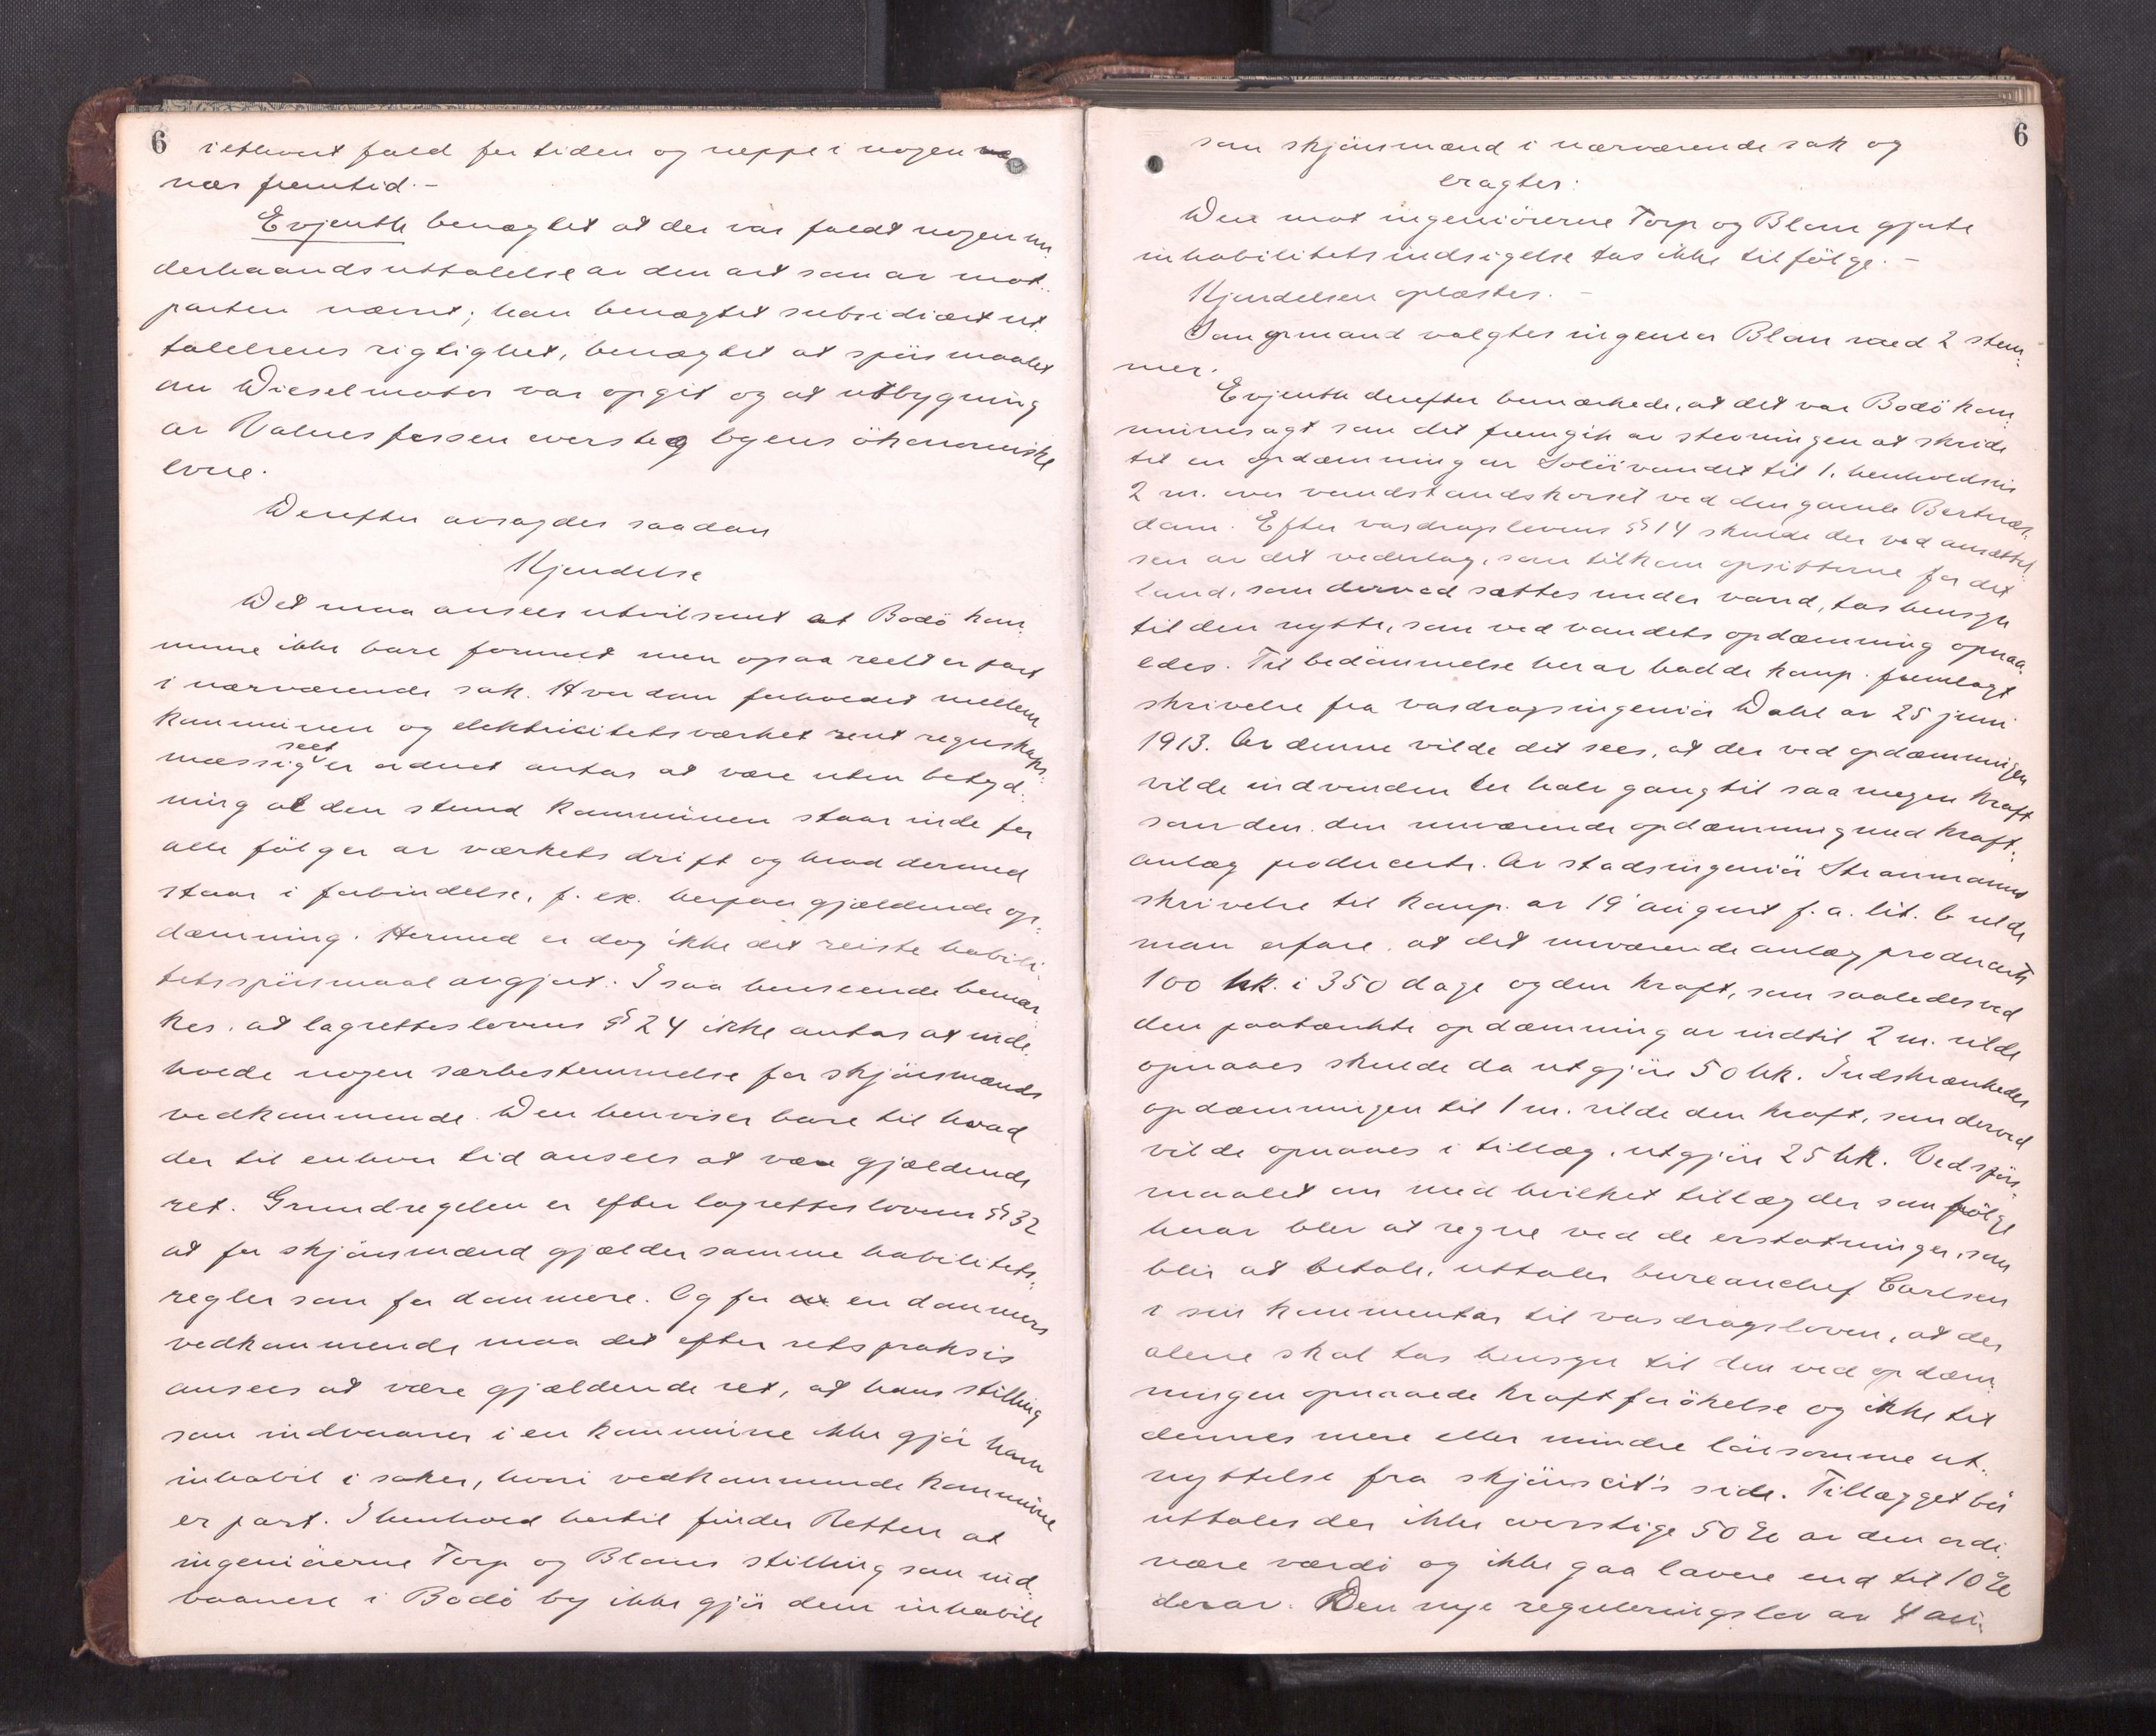 6 i ethvert fald for tiden og neppe i nogen
nær fremtid.-
Evjenth benægtet at der var faldt nogen un
derhaandsuttalelse av den art som av mot
parten nævnt; han benægtet subsidiært ut
talelsens rigtighet, benægtet at spørsmaalet
om Dieselmotor var opgit og at utbygning
av Valnesforsen oversteg byens økonomiske
evne.
Derefter avsagdes saadan
Kjendelse
Det maa ansees utvilsomt at Bodö kom
mune ikke bare formelt men ogsaa reelt er part
i nærværende sak. Hvordan forholdet mellem
kommunen og elektricitetsværket rent regnskaps
mæssig seet er ordnet antas at være uten betyd
ning al den stund kommunen staar inde for
alle følger av værkets drift og hvad dermed
staar i forbindelse, f. ex. herpaa gjældende op
dæmning. Hermed er dog ikke det reiste habili
tetsspørsmaal avgjort. I saa henseende bemær
kes, at lagretteslovens § 24 ikke antas at inde
holde nogen særbestemmelse for skjønsmænds
vedkommende. Den henviser bare til hvad
der til enhver tid ansees at være gjældende
ret. Grundregelen er efter lagretteslovens § 32
at for skjønsmænd gjælder samme habilitets
regler som for dommere. Og for en dommers
vedkommende maa det efter retspraksis
ansees at være gjældende ret, at hans stilling
som indvaaner i en kommune ikke gjør ham
inhabil i saker, hvori vedkommende kommune
er part. I henhold hertil finder Retten at
ingeniørerne Torp og Bloms stilling som ind
vaanere i Bodö by ikke gjør dem inhabile
6
som skjönsmænd i nærværende sak og
eragtes:
Den mot ingeniörerne Torp og Blom gjorte
inhabilitetsindsigelse tas ikke tilfölge.-
Kjendelsen oplæstes.-
Som formand valgtes ingeniör Blom med 2 stem
mer.
Evjenth derefter bemærkede, at det var Bodö kom
munes agt som det fremgik av stevningen at skride
til en opdæmning av Solöivandet til 1. henholdsvis
2 m. over vandstandskorset ved den gamle Bertnæs
dam. Efter vasdragslovens § 14 skulde der ved ansættel
sen av det vederlag, som tilkom opsitterne for det
land, som derved sættes under vand, tas hensyn
til den nytte, som ved vandets opdæmning opnaa
edes. Til bedömmelse herav hadde komp. fremlagt
skrivelse fra vasdragsingeniör Dahl av 25 juni
1913. Av denne vilde det sees, at der ved opdæmningen
vilde indvindes en halv gang til saa megen kraft
som den, den nuværende opdæmning med kraft
anlæg producerte. Av stadsingeniör Straumanns
skrivelse til komp. av 19 august f. a. lit. b vilde
man erfare, at det nuværende anlæg producerte
100 hk. i 350 dage og den kraft, som saaledes ved
den paatænkte opdæmning av indtil 2 m. vilde
opnaaes skulde da utgjöre 50 hk. Indskrænkedes
opdæmningen til 1 m. vilde den kraft, som derved
vilde opnaaes i tillæg, utgjöre 25 hk. Ved spörs
maalet om med hvilket tillæg der som fölge
herav blev at regne ved de erstatninger, som
blir at betale, uttaler bureauchef Carlsen
i sin kommentar til vasdragsloven, at der
alene skal tas hensyn til den ved opdæm
ningen opnaaede kraftforökelse og ikke til
dennes mere eller mindre lönsomme ut
nyttelse fra skjönscit's side. Tillægget bör
uttales der ikke overstige 50 % av den ordi
nære værdi og ikke gaa lavere end til 10 %
derav. Den nye reguleringslov av 4 au